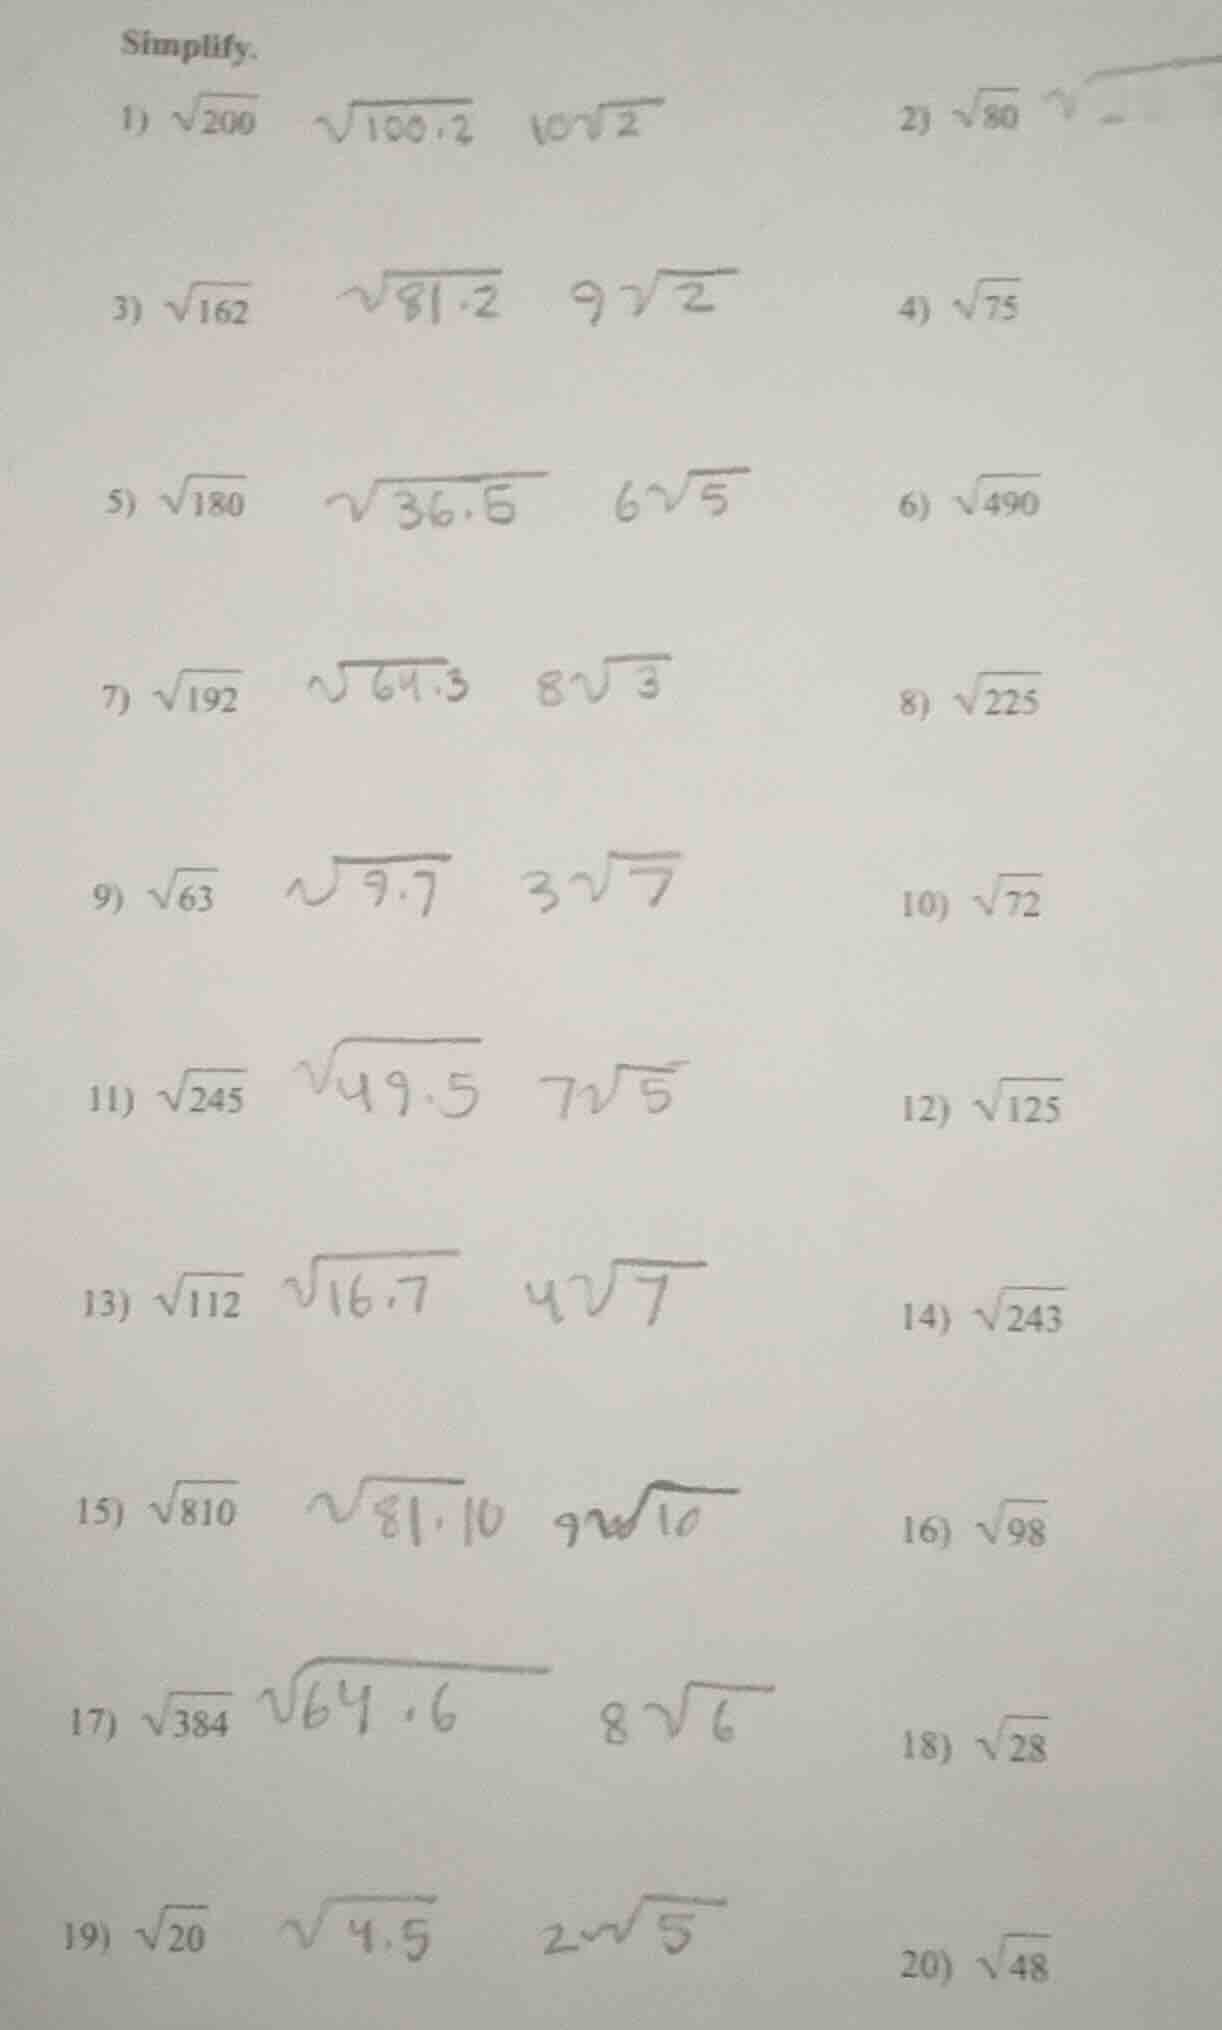 Simplify.
1) √200 √100.2 10√2 2) √80 √
3) √162 √81.2 9√2 4) √75
5) √180 √36.5 6√5 6) √490
7) √192 √64.3 8√3 8) √225
9) √63 √9.7 3√7 10) √72
11) √245 √49.5 7√5 12) √125
13) √112 √16.7 4√7 14) √243
15) √810 √81.10 9√10 16) √98
17) √384 √64.6 8√6 18) √28
19) √20 √4.5 2√5 20) √48